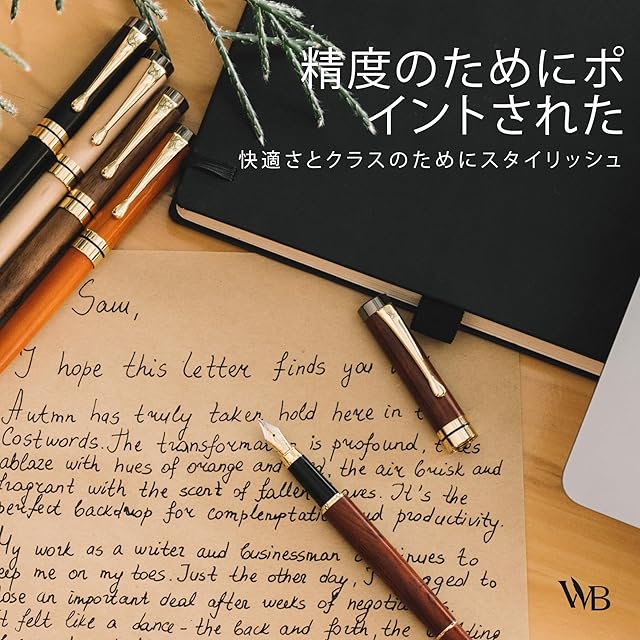 精度のためにポ
イントされた
快適さとクラスのためにスタイリッシュ
Sam,
I hope this letter finds you
Autmn has truly taken hold here in
Costwords. The transformation is profound,
ablaze with hues of orange and the air brisk and
fragrant with the scent of fallen It's the
perfect backdrop for complemptation and productivity.
My work as a writer and businessman continues to
keep me on my toes. Just the other day, I managed to
close an important deal after weeks of
It felt like a dance - the back and forth, the
WB